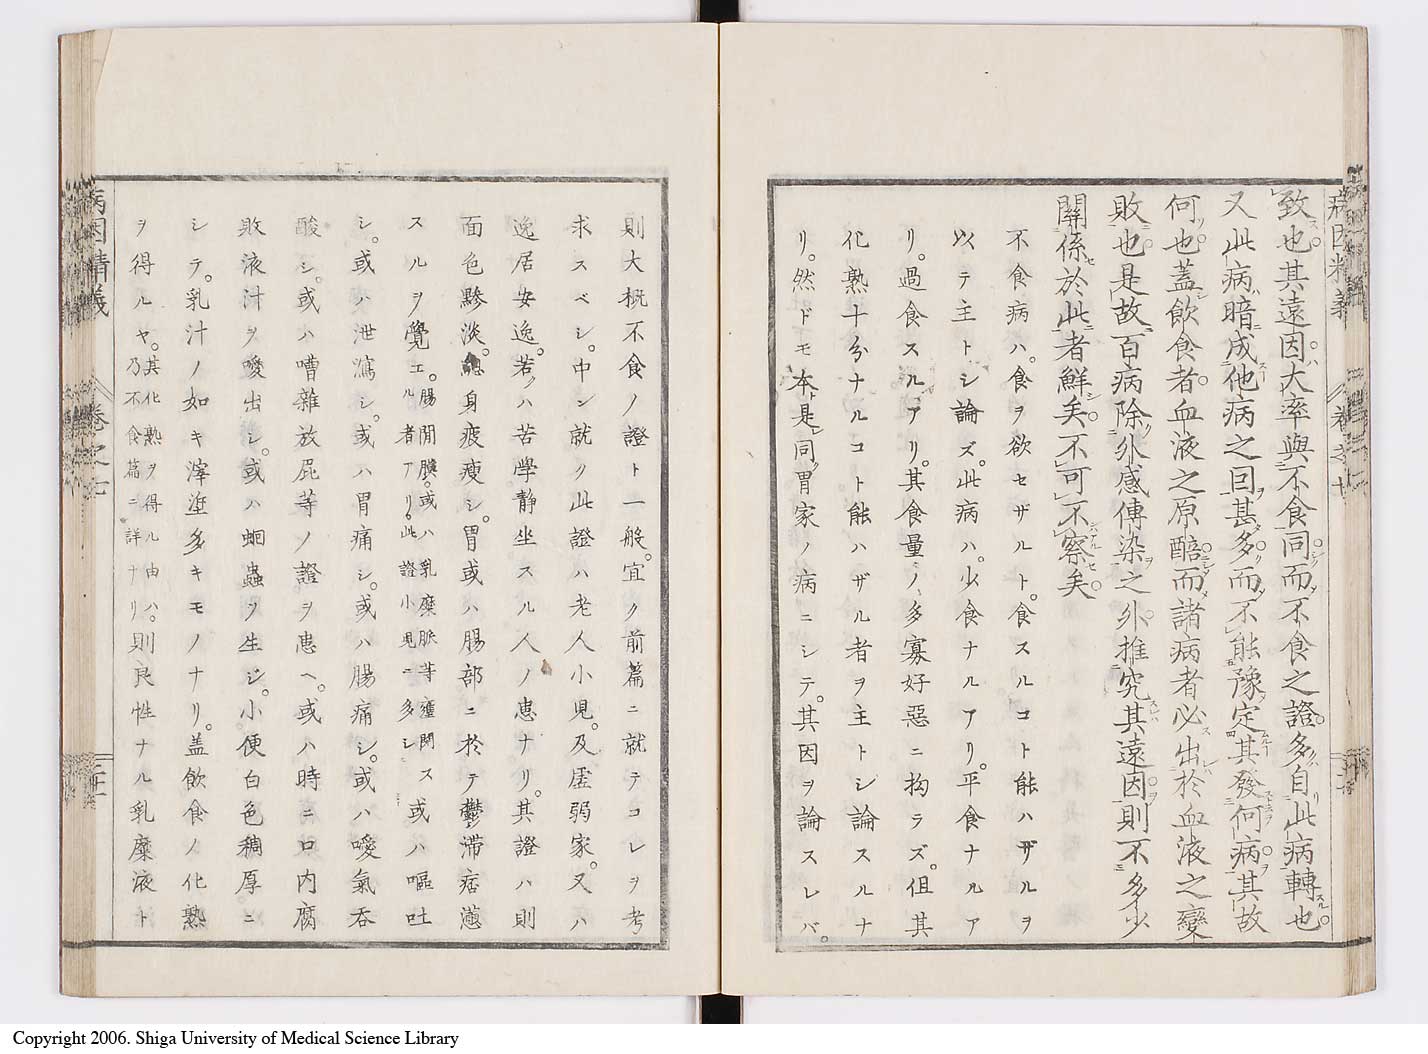 病因精義 卷之七
致也其遠因大率與不食同而不食之證多自此病轉也
又此病暗成他病之因甚多而不能豫定其發何病其故
何也蓋飲食者血液之原酷而諸病者必出於血液之變
敗也是故百病除外感傳染之外推究其遠因則不多少
關係於此者鮮矣不可不察矣
不食病ハ。食ヲ欲セザルト。食スルコト能ハザルヲ
以テ主トシ論ズ。此病ハ。少食ナルアリ。平食ナルア
リ。過食スルアリ。其食量ノ多寡好惡ニ拘ラズ。但其
化熟十分ナルコト能ハザル者ヲ主トシ論スルナ
リ。然ドモ本是同胃家ノ病ニシテ。其因ヲ論スレバ。
則大概不食ノ證ト一般。宜ク前篇ニ就テコレヲ考
求スベシ。中ン就ク此證ハ老人小児。及虛弱家。又ハ
逸居安逸。若クハ苦學靜坐スル人ノ患ナリ。其證ハ則
面色黲淡。總身疲瘦シ。胃或ハ腸部ニ於テ鬱滯痞懣
スルヲ覺エ。腸間膜。或ハ乳糜脈等壅閉スル者アリ。此證小児ニ多シ或ハ嘔吐
シ。或ハ泄瀉シ。或ハ胃痛シ。或ハ腸痛シ。或ハ噯氣呑
酸シ。或ハ嘈雜放屁等ノ證ヲ患ヘ。或ハ時ニ口内腐
敗液汁ヲ噯出シ。或ハ蛔蟲ヲ生ジ。小便白色稠厚ニ
シテ。乳汁ノ如キ滓埿多キモノナリ。蓋飲食ノ化熟
ヲ得ルヤ。其化熟ヲ得ル由ハ。乃不食篇ニ詳ナリ。則良性ナル乳糜液ト
病因精義 卷之七
Copyright 2006. Shiga University of Medical Science Library